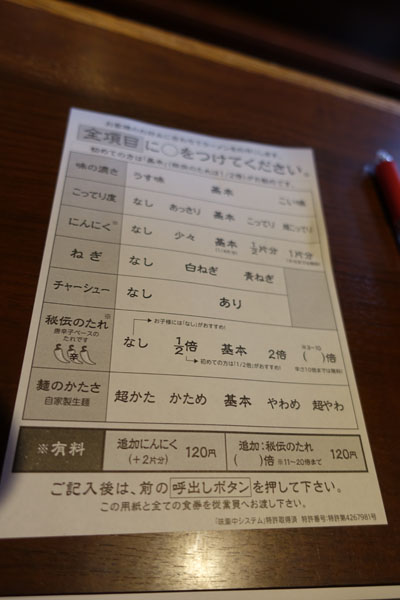 お客様のお好みに合わせてラーメンをお作りします
全項目に○をつけてください。
初めての方は「基本」(秘伝のたれは1/2倍)がお勧めです。
味の濃さ うす味 基本 こい味
こってり度 なし あっさり 基本 こってり 超こってり
にんにく※ なし 少々 基本 1/2片分 1片分
ねぎ なし 白ねぎ 青ねぎ
チャーシュー なし あり
秘伝のたれ※
唐辛子ベースの
たれです
辛
お子様には「なし」がおすすめ!
なし 1/2倍 基本 2倍 ( )倍
※3~10
初めての方は「1/2倍」がおすすめ!
※10倍までは無料
麺のかたさ 超かた かため 基本 やわめ 超やわ
自家製生麺
※有料
追加にんにく 120円
(+2片分)
追加:秘伝のたれ 120円
( )倍 ※11~20倍まで
ご記入後は、前の呼出しボタンを押して下さい。
この用紙と全ての食券を従業員へお渡し下さい。
「味集中システム」特許取得済 特許番号:特許第4267981号